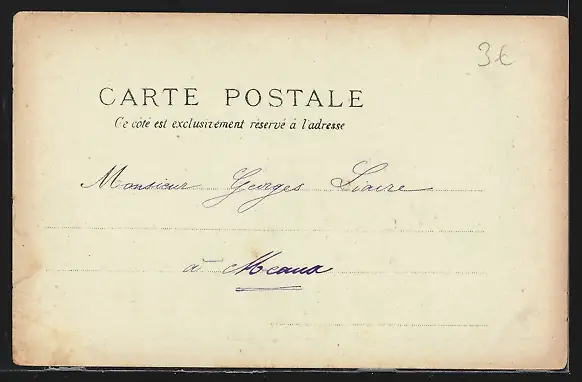 3€
CARTE POSTALE
Ce côté est exclusivement réservé à l'adresse
Monsieur Georges Liaire
à Meaux